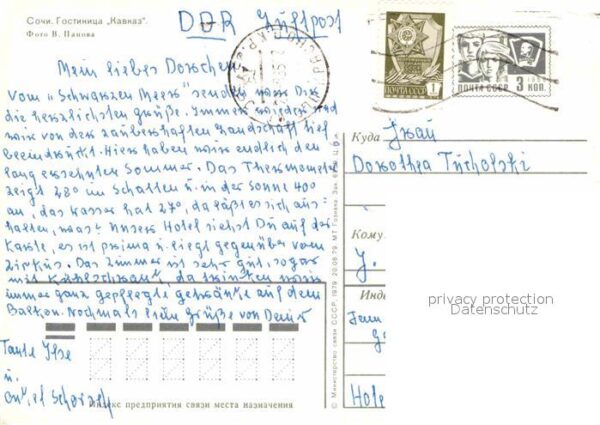 Сочи. Гостиница „Кавказ".
Фото В. Панова
DDR Luftpost
Mein liebes Dorchen,
vom „Schwarzen Meer" senden wir Dir
die herzlichsten Grüße. Immer wieder sind
wir von der zauberhaften Landschaft tief
beeindruckt. Hier haben wir endlich den
lang ersehnten Sommer. Das Thermometer
zeigt 28° im Schatten u. in der Sonne 40°
an, das Wasser hat 27°, da läßt es sich aus-
halten, was? Unser Hotel siehst Du auf der
Karte, es ist prima u. liegt gegenüber vom
Zirkus. Das Zimmer ist sehr gut, sogar
mit Kühlschrank, da trinken wir
immer ganz gepflegte Getränke auf dem
Balkon. Nochmals liebe Grüße von Deiner
Tante Ilse
u.
Onkel
ПОЧТА СССР 1
ПОЧТА СССР 3 КОП.
Куда
Dorothea Tucholski
Кому
J.
Инд
Hote
privacy protection
Datenschutz
© Министерство связи СССР, 1979
Индекс предприятия связи места назначения